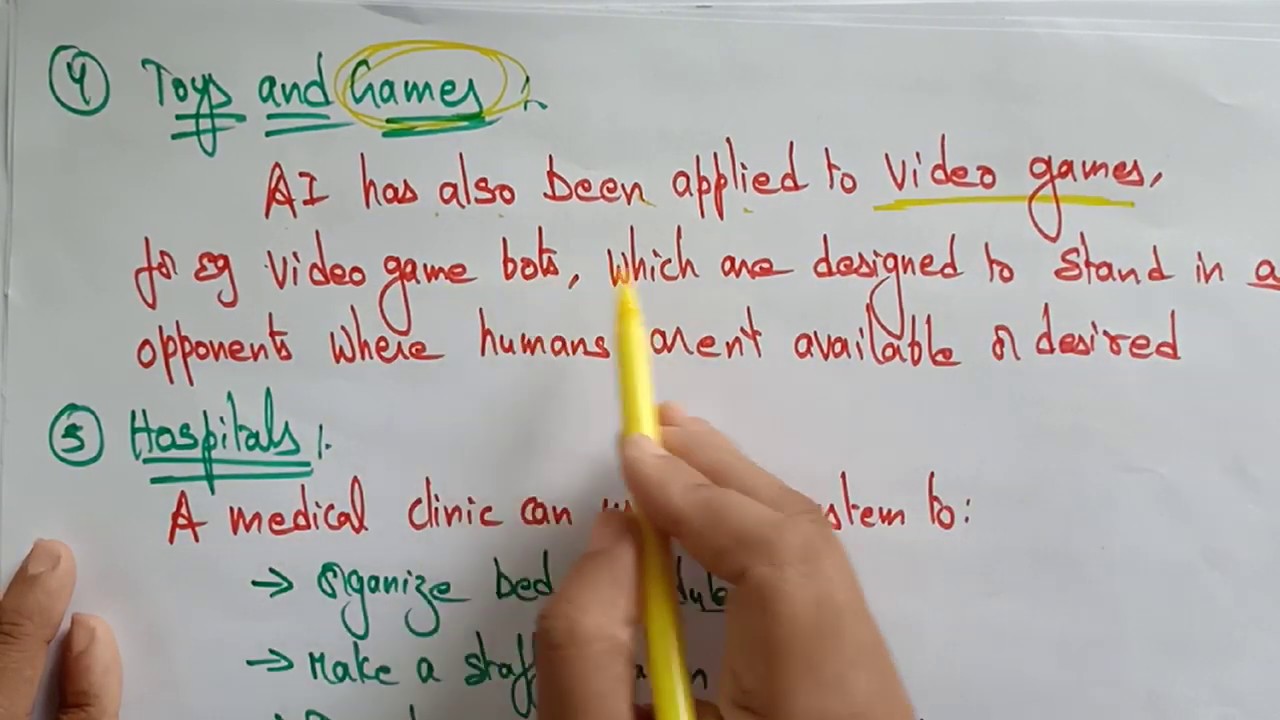 ④ Toys and Games :
AI has also been applied to video games,
for eg video game bots, which are designed to stand in a
opponents where humans arent available or desired
⑤ Hospitals :
A medical clinic can to:
→ organize bed
→ Make a staff